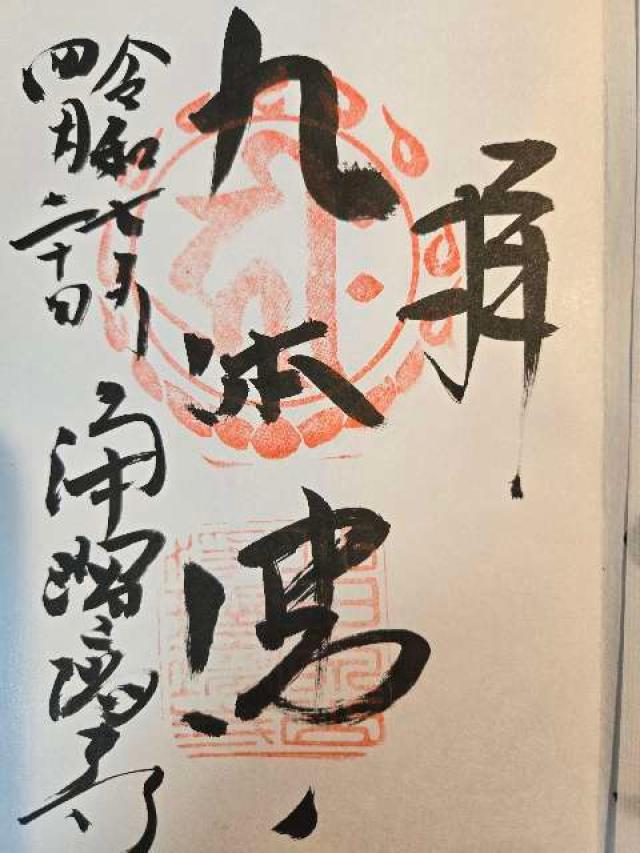 拝
九体佛
令和七年
四月二十日
浄瑠璃寺